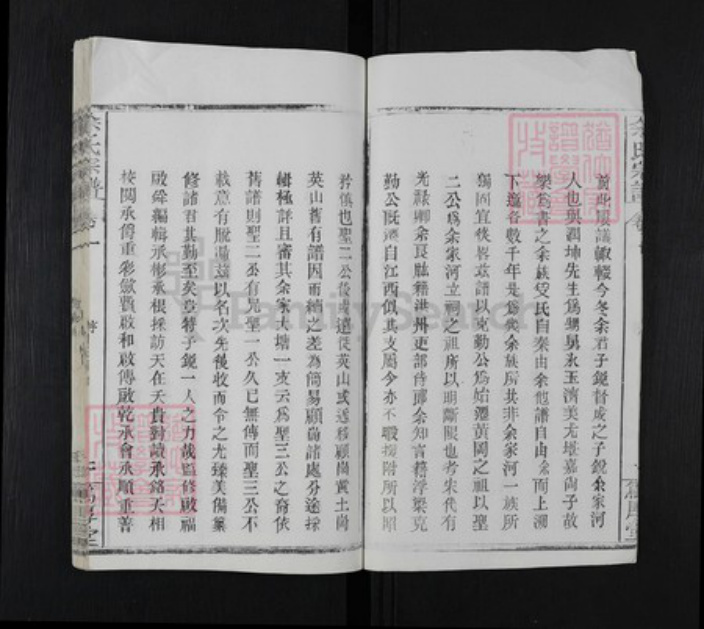 余氏宗譜
人也與潤坤先生為甥舅氷玉濟美尤堪嘉尚子故
樂為書之余族受氏自秦由余他譜自由余而上溯
下邇各數千年是為我余族所共非余家河一族所
獨固宜從畧茲譜以克勤公為始遷黃岡之祖以聖
二公為余家河立祠之祖所以明斷限也考宋代有
光祿卿余良肱籍洪州吏部侍郎余知古籍浮梁克
勤公既遷自江西似其支屬今亦不暇援附所以昭
矜慎也聖二公後或遷徙英山或近移顧崗黃土崗
英山舊有譜因而續之差為簡易顧崗諸處分途採
輯極詳且審其余家大塆一支云為聖三公之裔依
舊譜則聖二公有兄聖一公久已無傳而聖三公不
載意有脫漏茲以名次先後收而合之尤臻美備纂
修諸君其勤至矣豈特子鏡一人之力哉監修啟福
啟舜編輯承彬承根採訪天在天貴對讀承銘天相
校閱承爵重彩啟賢啟和啟傳啟乾承會承順重善
余氏宗譜 卷一 序